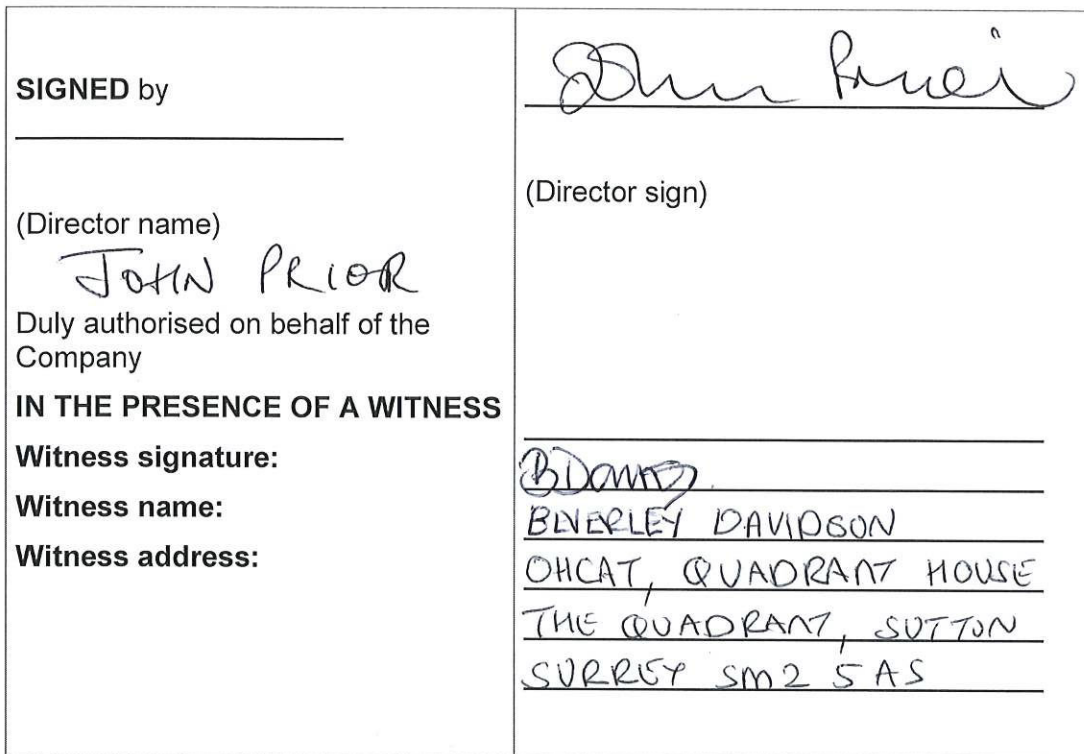 SIGNED by
(Director name)
JOHN PRIOR
Duly authorised on behalf of the
Company
IN THE PRESENCE OF A WITNESS
Witness signature:
Witness name:
Witness address:
John Prior
(Director sign)
BEVERLEY DAVIDSON
OHCAT, QUADRANT HOUSE
THE QUADRANT, SUTTON
SURREY SM2 5AS